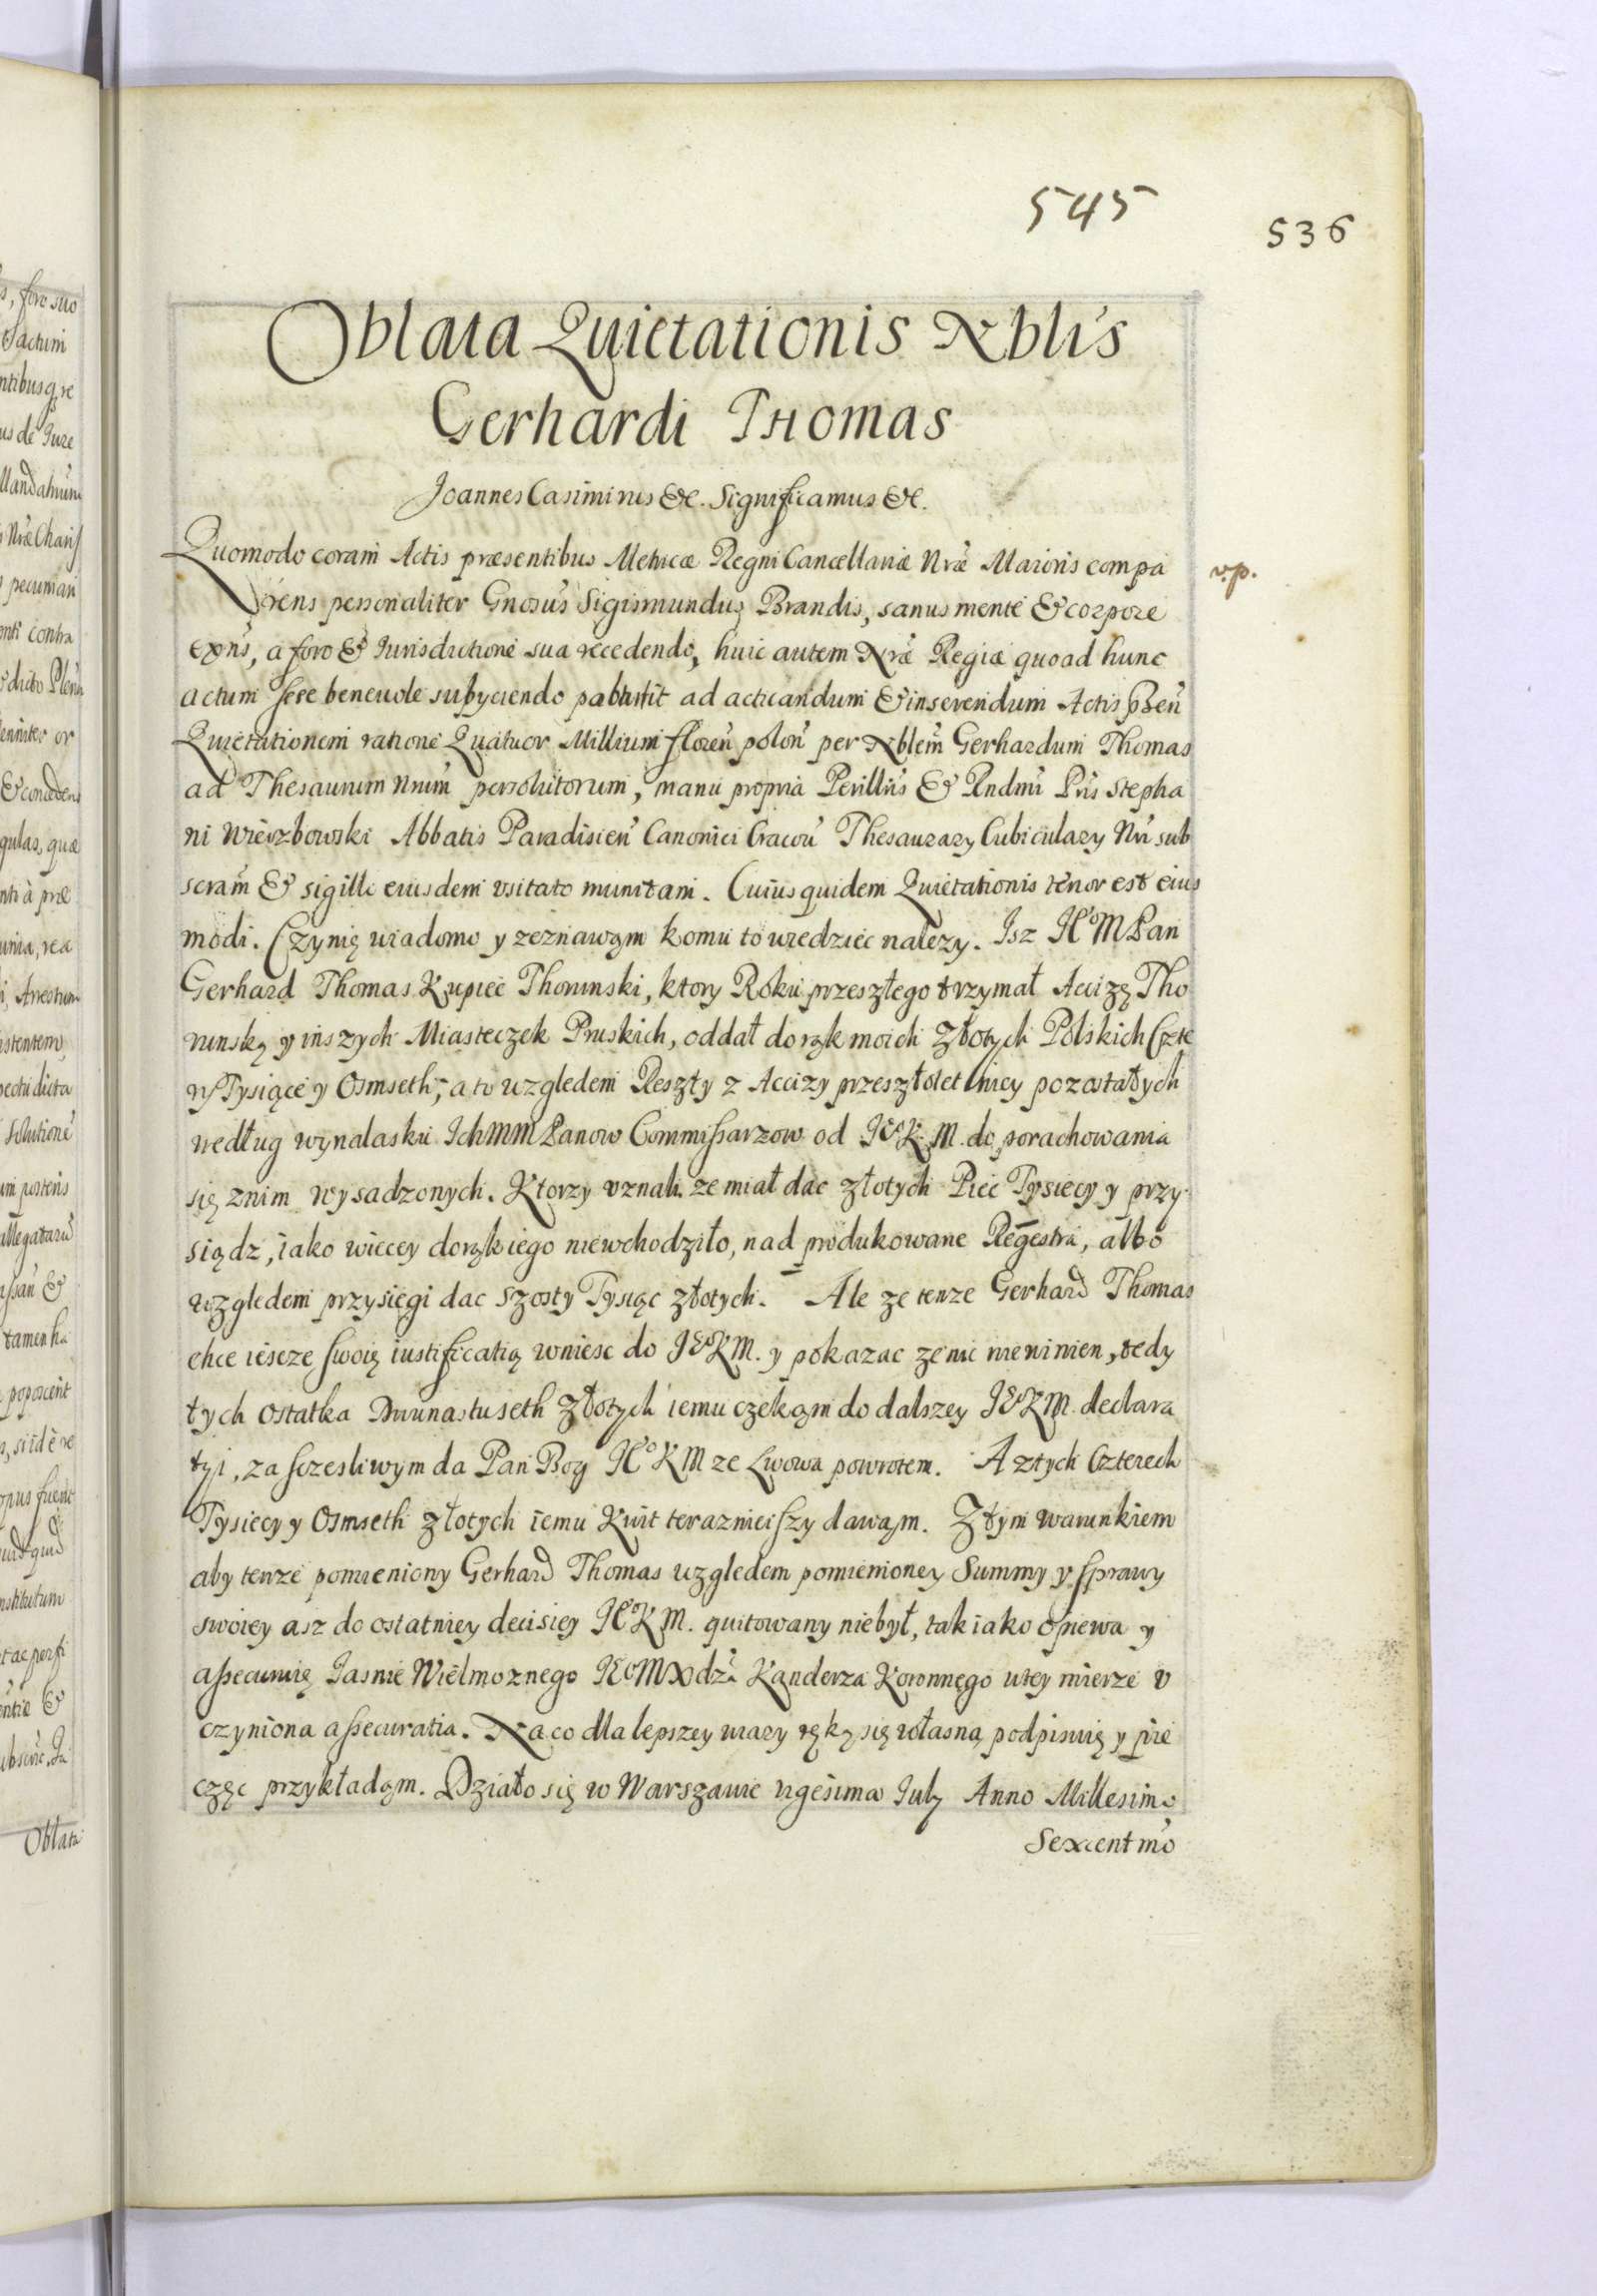 545
536
Oblata Quietationis Nblis
Gerhardi Thomas
Joannes Casimirus &c. Significamus &c.
Quomodo coram Actis præsentibus Metricæ Regni Cancellariæ Nræ Maioris compa
v.p.
rens personaliter Gnosus Sigismundus Brandis, sanus mente & corpore
exns, a foro & Jurisdictione sua recedendo, huic autem Nræ Regiæ quoad hunc
actum sese beneuole subyciendo obtulit ad acticandum & inserendum Actis psen
Quietationem ratione Quatuor Millium floren polon per Nblem Gerhardum Thomas
ad Thesaurum Nrum persolutorum, manu propria Perillris & Rndmi Pris Stepha
ni Wierzbowski Abbatis Paradisien Canonici Cracou Thesaurary Cubiculary Nri sub
scram & sigillo eiusdem vsitato munitam. Cuius quidem Quietationis tenor est eius
modi. Czynię wiadomo y zeznawąm komu to wiedziec nalezy. Isz JE°M Pan
Gerhard Thomas Kupiec Thorunski, ktory Roku przeszłego trzymał Accizę Tho
runską y inszych Miasteczek Pruskich, oddał do rąk moich złotych Polskich Czte
ry Tysiące y Osmseth, a to wzgledem Reszty z Accizy przeszłoletniey pozostałych
według wynalasku Ich MM Panow Commissarzow od JE°K M. do porachowania
się znim wysadzonych. Ktorzy vznali ze miał dac złotych Piec Tysiecy y przy
siądz, iako wiecey do rąk iego niewchodziło, nad produkowane Regestra, albo
wzgledem przysiegi dac Szosty Tysiąc złotych. Ale ze tenze Gerhard Thomas
chce iescze swoię iustificatią wniesc do JE°K M. y pokazac ze nic niewinien, tedy
tych ostatka Dwunastu seth złotych iemu czekąm do dalszey JE°K M. declara
tyi, za sczesliwym da Pan Bog JE°K M ze Lwowa powrotem. A z tych Czterech
Tysiecy y Osmseth złotych iemu Kwit teraznieiszy dawąm. Z tym warunkiem
aby tenze pomieniony Gerhard Thomas wzgledem pomienioney Summy y sprawy
swoiey asz do ostatniey decisiey JE°K M. quitowany niebył, tak iako opiewa y
assecuruię Jasnie Wielmoznego JE°M Xdza Kanclerza Koronnego w tey mierze v
czyniona assecuratia. Na co dla lepszey wiary ręką się własną podpisuię y pie
częc przykładąm. Działo się w Warszawie vigesima July Anno Millesimo
Sexcentmo